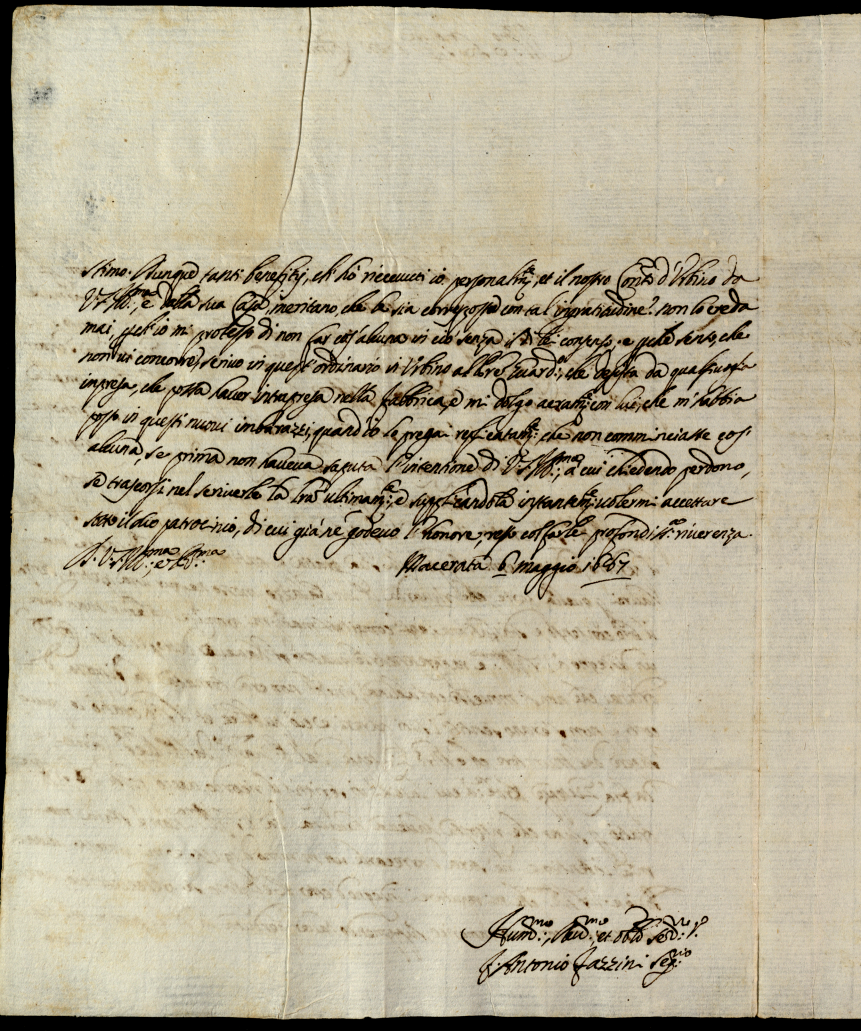 stimo. Dunque tanti benefitij, ch' hò riceuuti io personalm:te, et il nostro Con:to d'Urbino da
V.S.Ill:ma, e dalla sua Casa, meritano, che le sia corrisposto con tal ingratitudine? non lo creda
mai, ch' io mi protesto di non far cos' alcuna in ciò senza il di lei consenso, e
non ui concorre, scriuo in quest' ordinario in Urbino al Pre Guard:o, che desista da qualsiuoglia
impresa, che possa hauer intrapresa nella fabbrica, e mi dolgo con lui, che m' habbia
posto in questi nuoui imbarazzi, quand' io lo pregai replicatam:te che non cominciasse cos'
alcuna, se prima non haueua saputa l' intentione di V.S.Ill:ma, à cui chiedendo perdono,
se trascorsi nel scriuerle la mia ultimam:te, e supplicandola instantem:te uolermi accettare
sotto il suo patrocinio, di cui già nè godeuo l' honore, resto col farle profondiss:a riuerenza.
D. V.S.Ill:ma, e R:ma
Macerata 6 maggio 1667
Hum:mo, Deu:mo, et obl:mo Ser:re
F. Antonio Fazzini Seg:rio